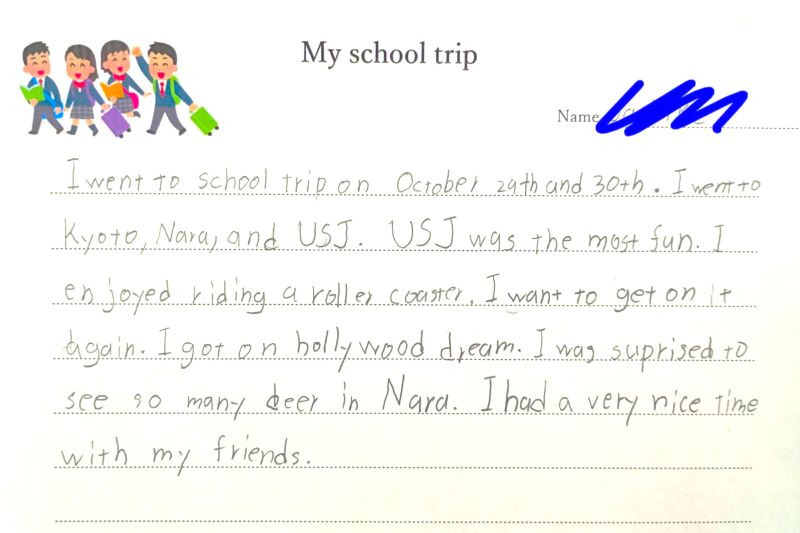 My school trip
Name
I went to school trip on October 29th and 30th. I went to
Kyoto, Nara, and USJ. USJ was the most fun. I
enjoyed riding a roller coaster. I want to get on it
again. I got on hollywood dream. I was suprised to
see so many deer in Nara. I had a very nice time
with my friends.